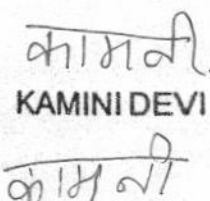 कामनी
KAMINI DEVI
कामनी